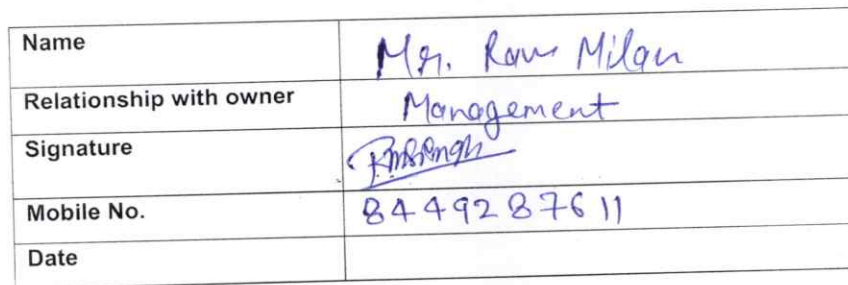 Name Mr. Ram Milan
Relationship with owner Management
Signature RMSingh
Mobile No. 8449287611
Date